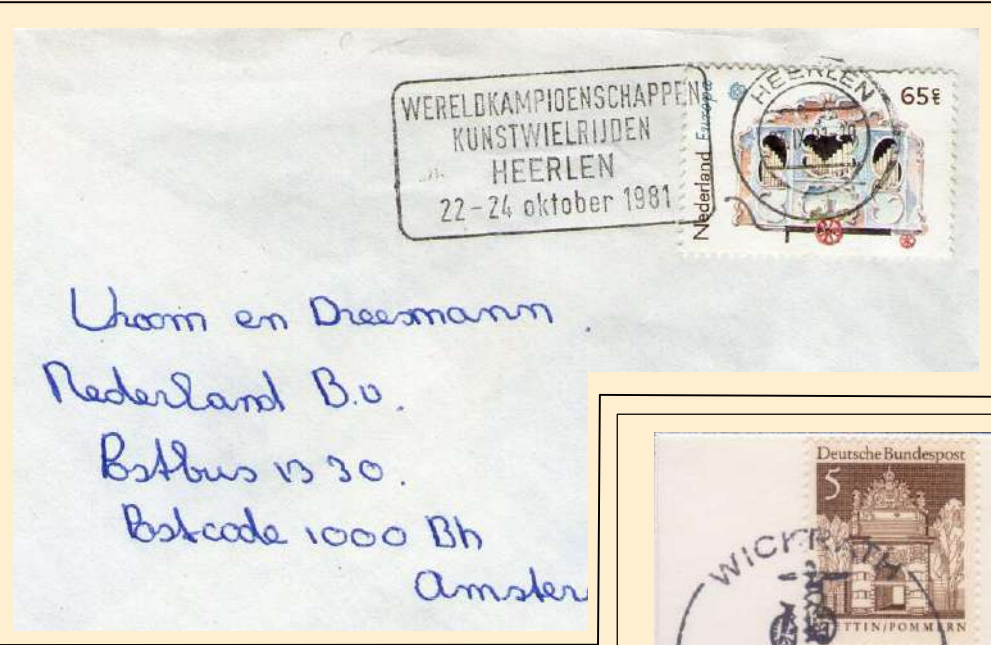 WERELDKAMPIOENSCHAPPEN
KUNSTWIELRIJDEN
HEERLEN
22-24 oktober 1981
HEERLEN
65c
Nederland Europa
Vroom en Dreesmann.
Nederland B.V.
Postbus 1330.
Postcode 1000 Bh
Amster
Deutsche Bundespost
5
WICKRATH
STETTIN/POMMERN